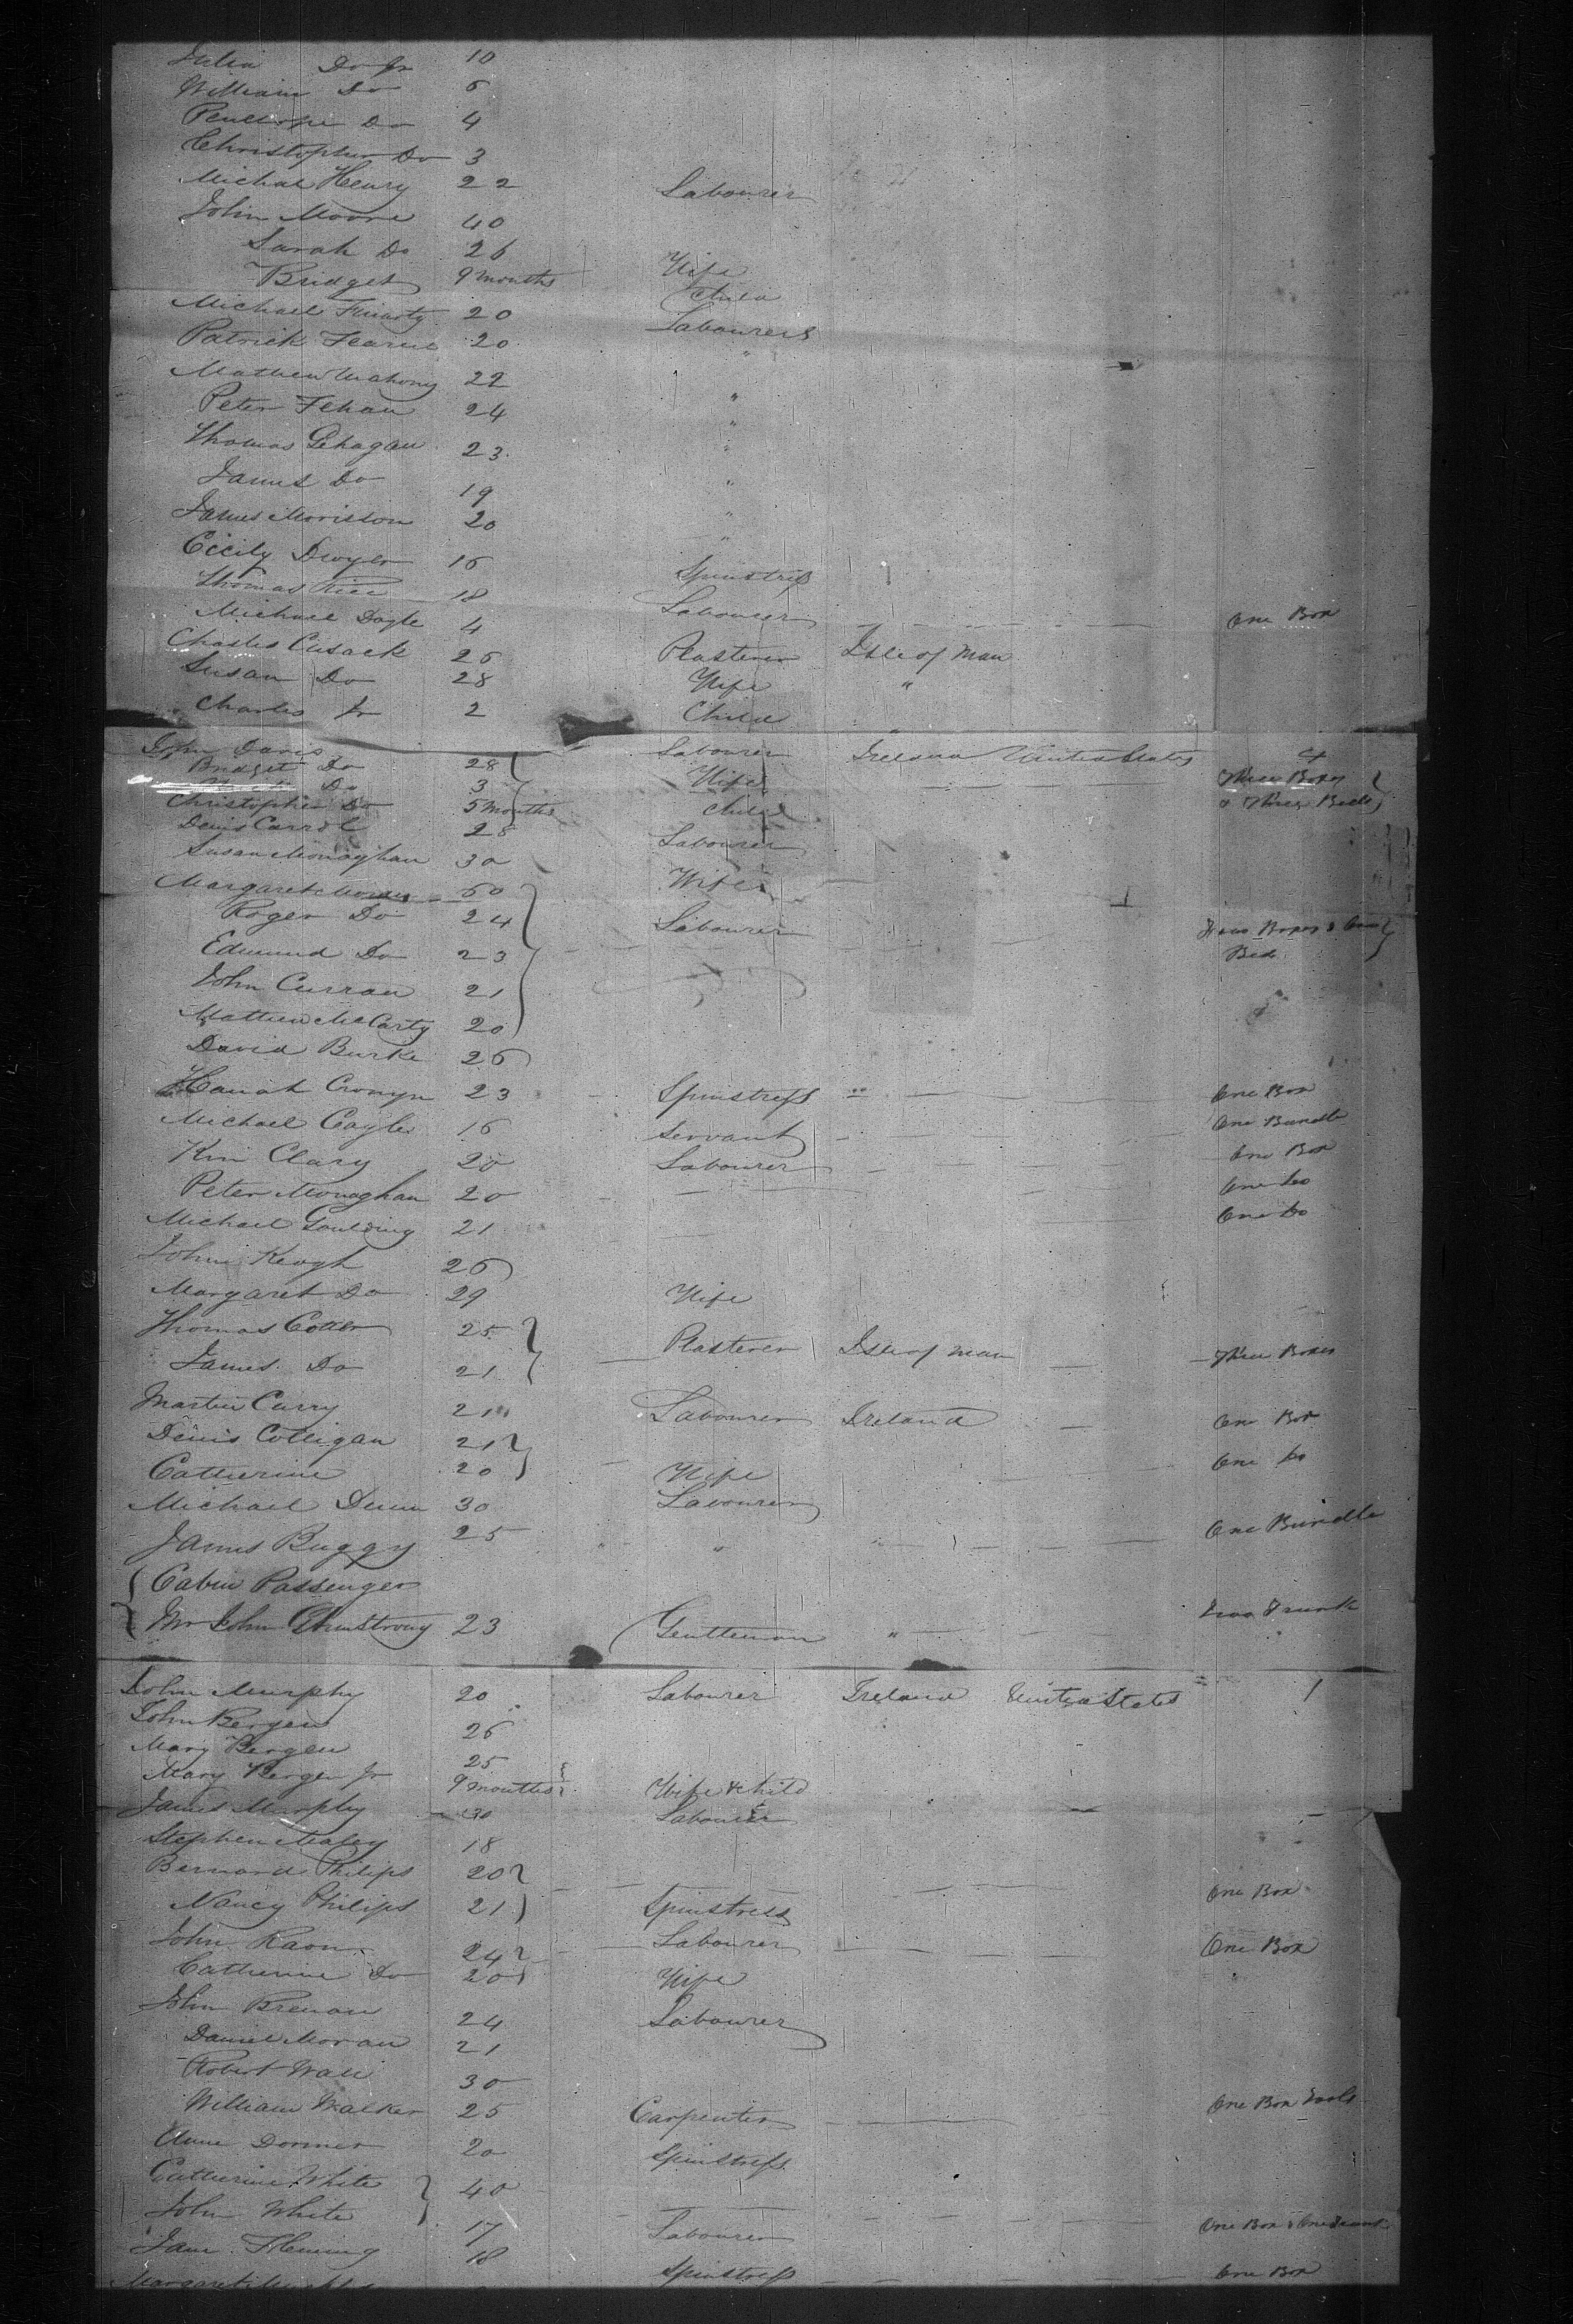 Julia Do Jr 10
William Do 6
Penelope Do 4
Christopher Do 3
Michal Henry 22 Labourer
John Moore 40
Sarah Do 26 Wife
Bridget 9 months Child
Michael 20 Labourers
Patrick 20 "
Mathew Mahony 22 "
Peter Fehan 24 "
Thomas Gehagan 23 "
James Do 19 "
James Morisson 20 "
Cecily Dwyer 16 Spinstress
Thomas Rice 18 Labourer
Michael Doyle 4 One Box
Charles Cusack 26 Plasterer Isle of Man
Susan Do 28 Wife "
Charles Jr 2 Child "
John Davis 28 Labourer Ireland United States 4
Bridget Do 3 Wife Three Boxes
Do & Three Beds
Christopher Do 5 months Child
Denis Carrol 28 Labourer
Susan Monaghan 30 Wife
Margaret 50
Roger Do 24 Labourer
Edmund Do 23 Bed
John Curran 21
Matthew McCarty 20
David Burke 26
Hanah Cronyn 23 Spinstress One Box
Michael Cayler 16 Servant One Bundle
Kin Clary 20 Labourer One Box
Peter Monaghan 20 One Do
Michael Goulding 21 One Do
John Keogh 26
Margaret Do 29 Wife
Thomas Cotter 25 Plasterer Isle of Man Three Boxes
James Do 21
Martin Curry 21 Labourer Ireland One Box
Denis Colligan 21 One Do
Catherine 20 Wife
Michael Dunn 30 Labourer
James Buggy 25 " One Bundle
Cabin Passenger
Mr John Armstrong 23 Gentleman " Two Trunk
John Murphy 20 Labourer Ireland United States 1
John Bergen 26
Mary Bergen 25
Mary Bergen Jr 9 months Wife & Child
James Murphy 30 Labourer
Stephen Maley 18
Bernard Philips 20 One Box
Nancy Philips 21 Spinstress
John Raon 24 Labourer One Box
Catherine Do 20 Wife
John Brenan 24 Labourer
Daniel Moran 21
Robert Wall 30
William Walker 25 Carpenter One Box Tools
Anne Dormer 20 Spinstress
Catherine White 40
John White 17 Labourer One Box & One Trunk
Jane Fleming 18 Spinstress One Box
Margaret